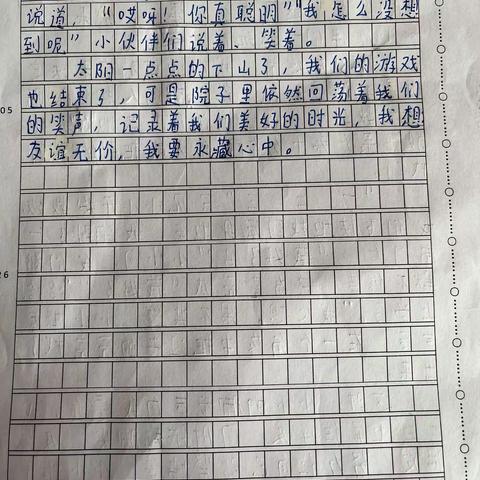 说道，“哎呀！你真聪明”“我怎么没想
到呢”小伙伴们说着、笑着。
太阳一点点的下山了，我们的游戏
也结束了，可是院子里依然回荡着我们
的笑声，记录着我们美好的时光，我想
友谊无价，我要永藏心中。
05
26